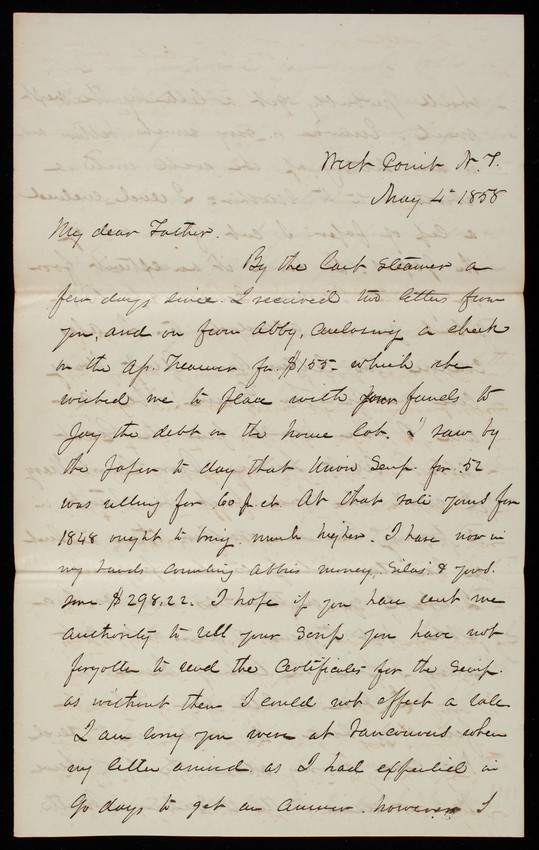 West Point N.Y.
May 4th 1858
My dear Father.
By the last Steamer a
few days since I received two letters from
you, and on from Abby, enclosing a check
on the Ap. Treasurer for $155- which she
wished me to place with your funds to
pay the debt on the home lot. I saw by
the paper to day that Union Scrip. for .52
was selling for 60 p.ct. At that rate yours for
1848 ought to bring much higher. I have now in
my hands counting Abbies money, Silas' & yours.
some $298.22. I hope if you have sent me
authority to sell your Scrip you have not
forgotten to send the Certificates for the Scrip.
as without them I could not effect a sale
I am sorry you were at Vancouver when
my letter arrived as I had expected in
90 days to get an answer. however I